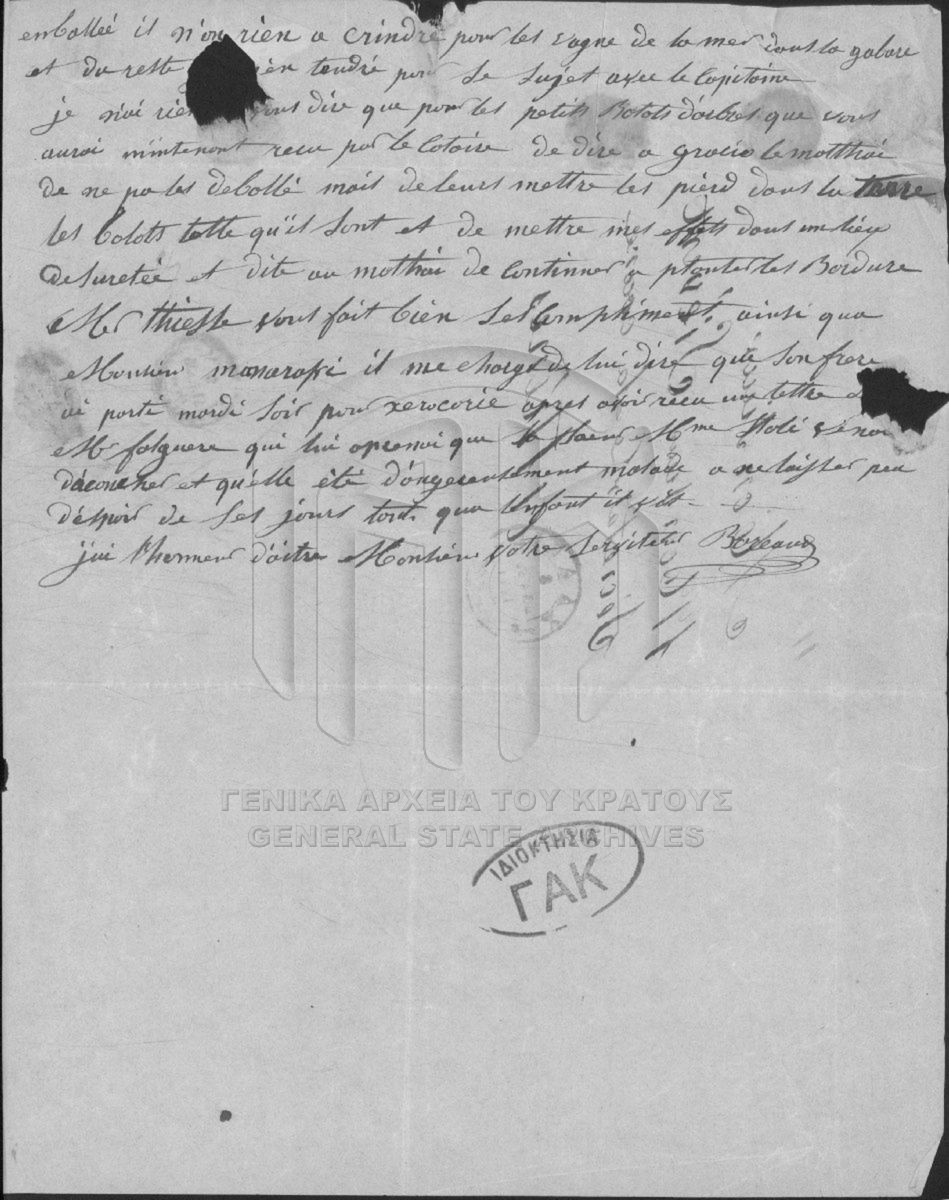 enballéé il n'on rien a crindre pour les vagne de la mer dans la gabare
et du reste bien tendré pour se sujet avec le Capitaine
je n'ai rien vous dire que pour les petits Balots d'arbres que vous
auroi mintenant recu par le Cotaire de dire a gracio le motthaié
de ne pa les deballé mais de leurs mettre les pierd dans la terre
les balots telle qu'il sont et de mettre mes effets dans un lieu
de suretée et dite au motthaié de Continuer a planter les Bordure
Mr thiesse vous fait bien Ses Compliment ainsi qua
Monsieur il me charge de lui dire que Son frere
ai parti mardi Soir pour xerocorié apres avoir recu un lettre
Mr folguere qui lui aprenoi que Sa Soeur Mme
d'acoucher et qu'elle été d'angereusement malade a ne laisser peu
d'espoir de Ses jours tout qua l'enfant il vit
j'ai l'honneur d'aitre Monsieur votre Serviteur
ΓΕΝΙΚΑ ΑΡΧΕΙΑ ΤΟΥ ΚΡΑΤΟΥΣ
GENERAL STATE ARCHIVES
ΙΔΙΟΚΤΗΣΙΑ
ΓΑΚ